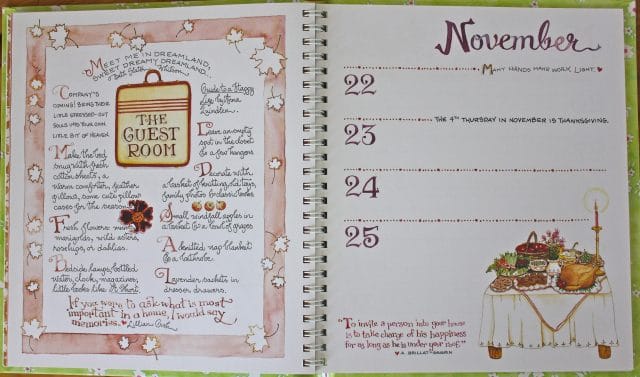 Meet me in dreamland,
sweet dreamy dreamland...
Beth Slater Whitson
Company's
coming! Bring their
little stressed-out
souls into your own
little bit of heaven.
THE
GUEST
ROOM
Make the bed
snug with fresh
cotton sheets, a
warm comforter, feather
pillows, some cute pillow
cases for the season.
Fresh flowers: mums,
marigolds, wild asters,
rosehips, or dahlias.
Bedside lamps, bottled
water, clock, magazines,
little books like A Short
Guide to a Happy
Life by Anna
Quindlen.
Leave an empty
spot in the closet
& a few hangers
Decorate with
a basket of knitting, old toys,
family photos & classic books
Small windfall apples in
a basket & a bowl of grapes
A knitted nap blanket
& a bathrobe
Lavender sachets in
dresser drawers.
If you were to ask what is most
important in a home, I would say
memories. ♥ Lillian Gish
November
Many hands make work light. ♥
22
The 4th Thursday in November is Thanksgiving.
23
24
25
"To invite a person into your house
is to take charge of his happiness
for as long as he is under your roof."
♥ A. Brillat-Savarin